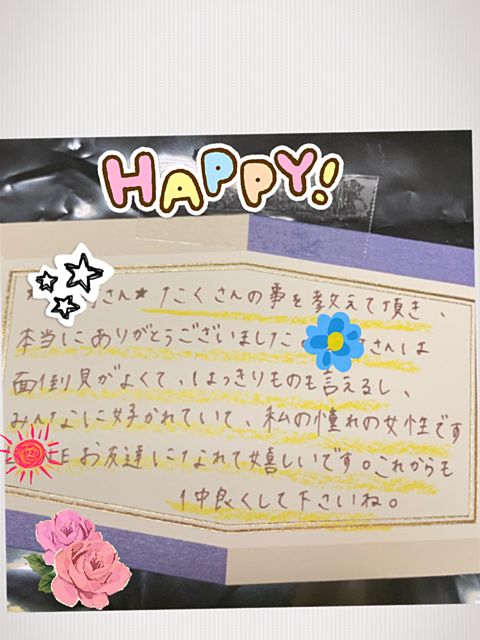 HAPPY!
さん★ たくさんの事を教えて頂き、
本当にありがとうございました さんは
面倒見がよくて、はっきりものも言えるし、
みんなに好かれていて、私の憧れの女性です
お友達になれて嬉しいです。これからも
仲良くして下さいね。